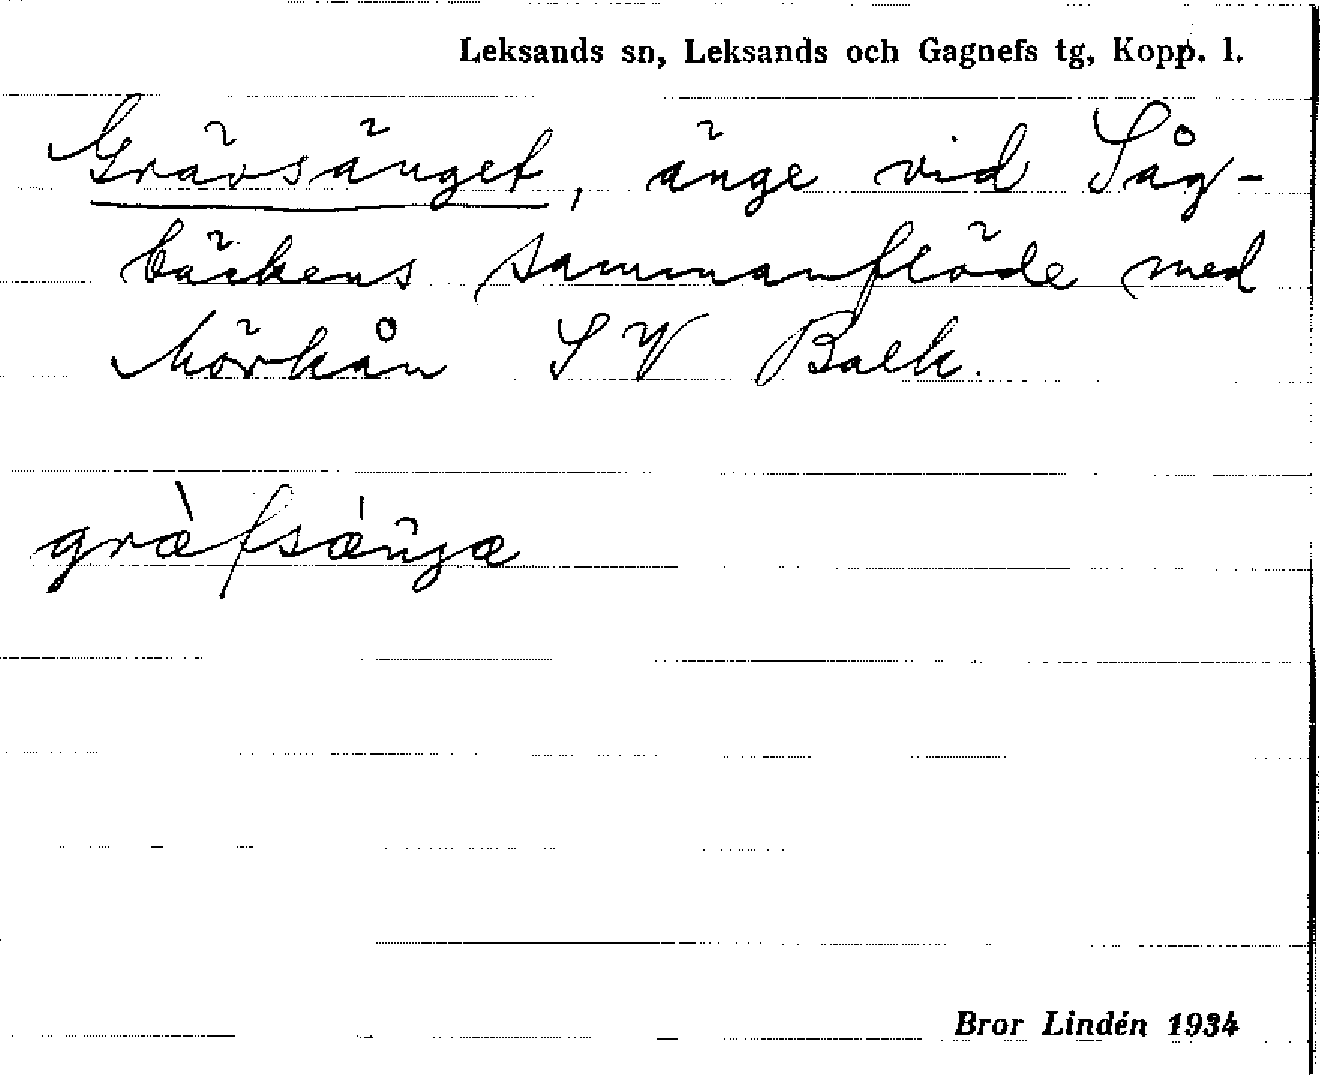 Leksands sn, Leksands och Gagnefs tg, Kopp. l.
Grävsänget, änge vid Såg-
bäckens sammanflöde med
Mörkån SV Balk.
græ̀fsǽŋgæ
Bror Lindén 1934